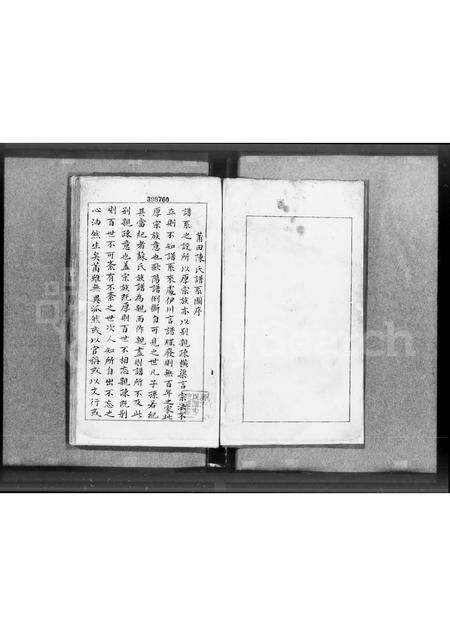 398760
莆田陳氏譜系圖序
譜系之設所以厚宗族亦以别親疎橫渠言宗法不
立則不知譜系來處伊川言譜牒廢則無百年之家此
厚宗族意也歐陽譜倒斷自可見之世凡子孫若紀
其當紀者蘇氏族譜為親而作親盡則譜所不及此
别親疎意也盖宗族既厚則百世不相忘親疎既别
則百世不可紊有不紊之世次人知所自出不忘之
心油然生矣莆雖無異派然或以官稱或以文行或